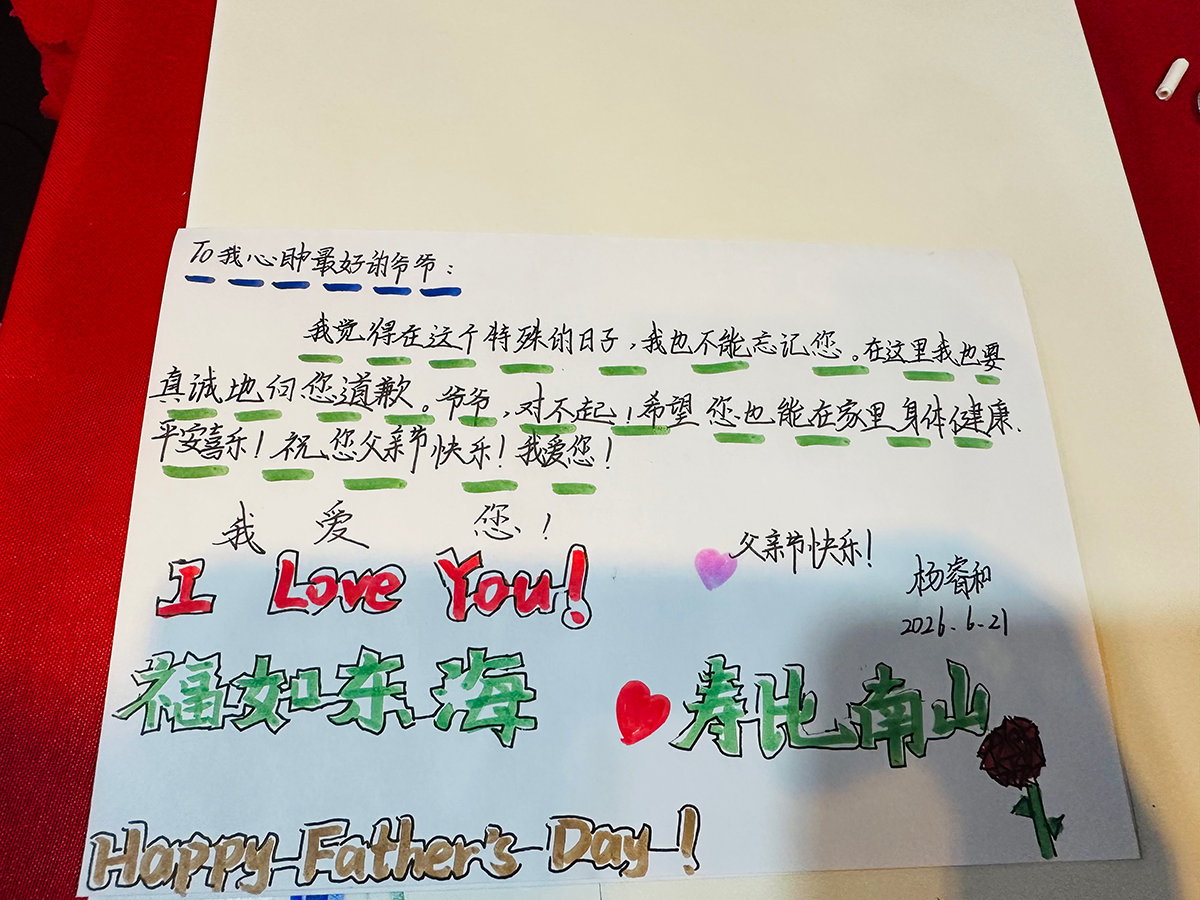 To 我心目中最好的爷爷：
我觉得在这个特殊的日子，我也不能忘记您。在这里我也要
真诚地向您道歉。爷爷，对不起！希望您也能在家里身体健康、
平安喜乐！祝您父亲节快乐！我爱您！
我爱 您！
I Love You!
父亲节快乐！
杨睿和
2026.6.21
福如东海 寿比南山
Happy Father's Day!